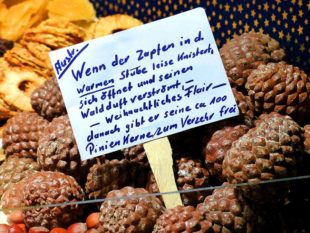 Ausk.
Wenn der Zapfen in d.
warmen Stube leise knistert,
sich öffnet und seinen
Waldduft verströmt –
– Weihnachtliches Flair –
danach gibt er seine ca 100
Pinien Kerne zum Verzehr frei.